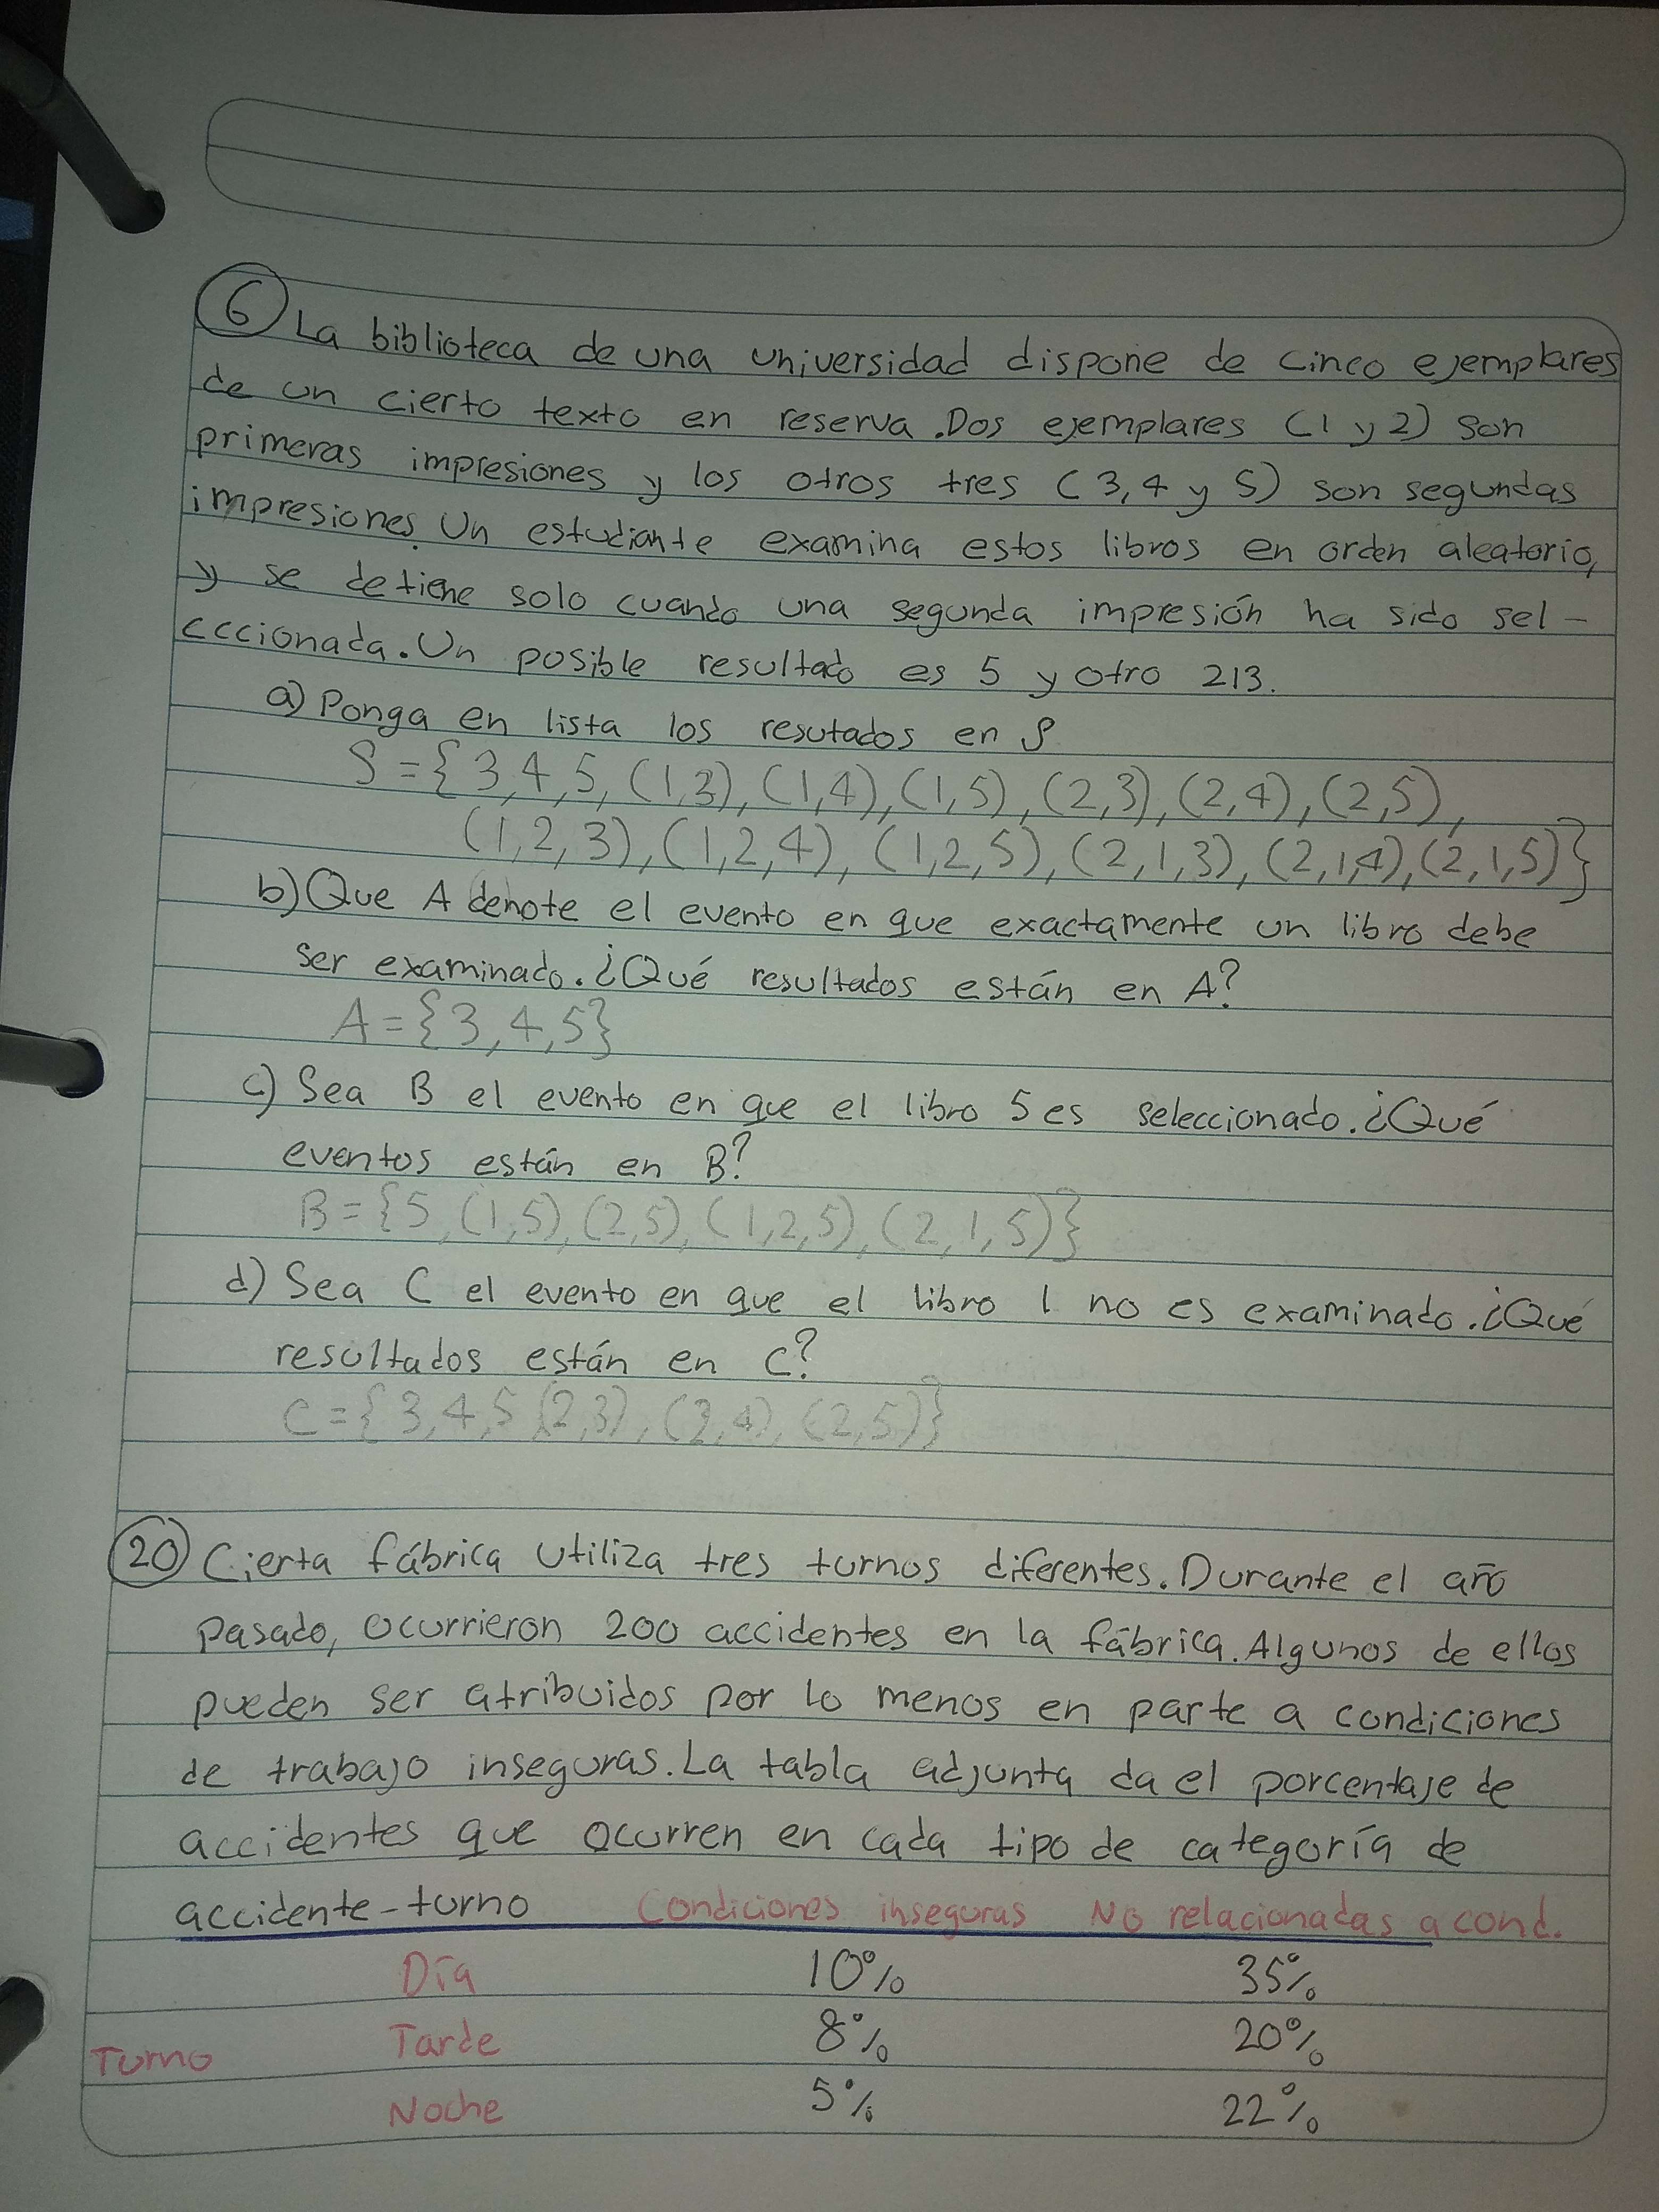 6 La biblioteca de una universidad dispone de cinco ejemplares
de un cierto texto en reserva. Dos ejemplares (1 y 2) son
primeras impresiones y los otros tres (3,4 y 5) son segundas
impresiones. Un estudiante examina estos libros en orden aleatorio,
y se detiene solo cuando una segunda impresión ha sido sel-
cccionada. Un posible resultado es 5 y otro 213.
a) Ponga en lista los resutados en S
S = {3,4,5,(1,3),(1,4),(1,5),(2,3),(2,4),(2,5),
(1,2,3),(1,2,4),(1,2,5),(2,1,3),(2,1,4),(2,1,5)}
b) Que A denote el evento en que exactamente un libro debe
ser examinado. ¿Qué resultados están en A?
A = {3,4,5}
c) Sea B el evento en que el libro 5 es seleccionado. ¿Qué
eventos están en B?
B = {5,(1,5),(2,5),(1,2,5),(2,1,5)}
d) Sea C el evento en que el libro 1 no es examinado. ¿Qué
resultados están en C?
C = {3,4,5(2,3),(2,4),(2,5)}
20 Cierta fábrica utiliza tres turnos diferentes. Durante el año
pasado, ocurrieron 200 accidentes en la fábrica. Algunos de ellos
pueden ser atribuidos por lo menos en parte a condiciones
de trabajo inseguras. La tabla adjunta da el porcentaje de
accidentes que ocurren en cada tipo de categoría de
accidente-turno Condiciones inseguras No relacionadas a cond.
Día 10% 35%
Tarde 8% 20%
Turno
Noche 5% 22%